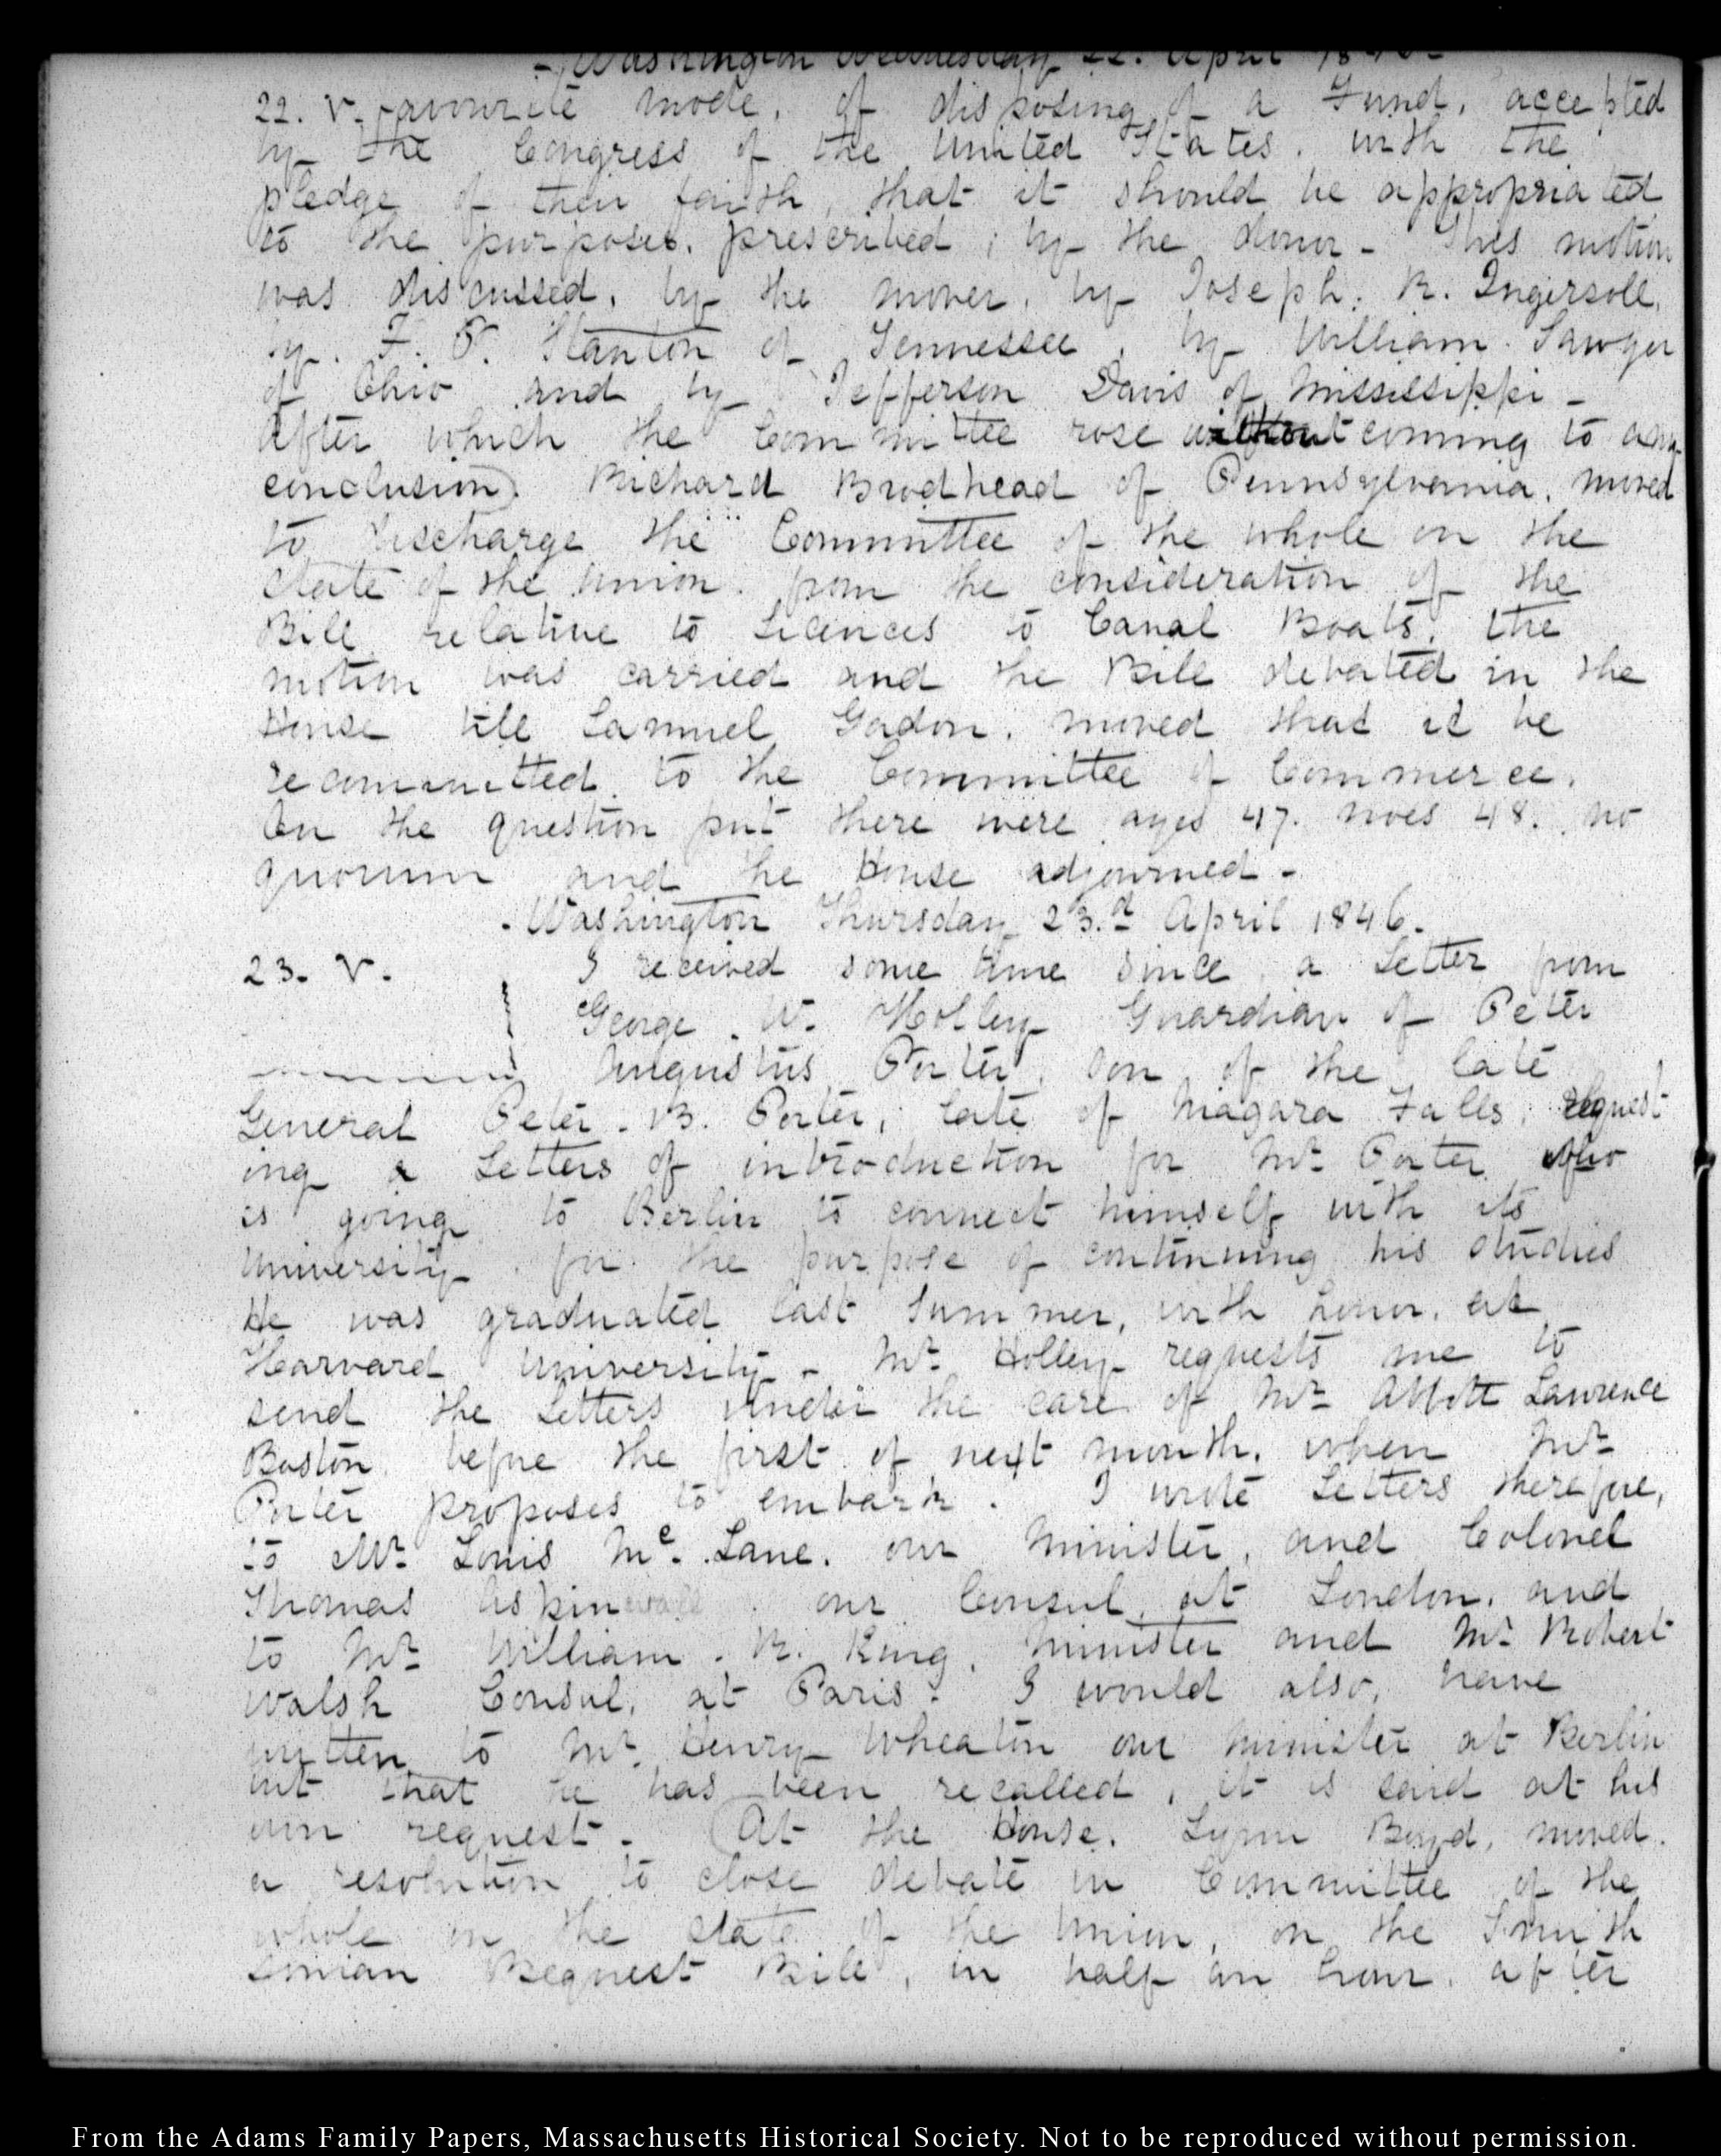 - Washington Wednesday 22. April 1846 -
22. V. favourite mode, of disposing of a Fund, accepted
by the Congress of the United States, with the
pledge of their faith, that it should be appropriated
to the purposes, prescribed, by the donor - This motion
was discussed, by the mover, by Joseph. R. Ingersoll,
by. F. P. Stanton of Tennessee, by William Sawyer
of Ohio and by Jefferson Davis of Mississippi -
After which the Committee rose without coming to any
conclusion) Richard Brodhead of Pennsylvania, moved
to discharge the Committee of the whole on the
State of the Union from the consideration of the
Bill relative to Licences to Canal Boats, the
motion was carried and the Bill debated in the
House till Samuel Gordon, moved that it be
recommitted to the Committee of Commerce.
On the question put there were ayes 47. noes 48. no
quorum and the House adjourned -
. Washington Thursday 23.d April 1846.
23. V. I received some time since, a Letter from
George W. Holley Guardian of Peter
Augustus Porter, son of the late
General Peter. B. Porter, late of Niagara Falls, request
ing a Letters of introduction for Mr. Porter who
is going to Berlin to connect himself with its
University, for the purpose of continuing his studies
He was graduated last Summer, with honor, at
Harvard University - Mr. Holley requests me to
send the Letters under the care of Mr. Abbott Lawrence
Boston before the first of next month, when Mr.
Porter proposes to embark. I wrote Letters therefore,
to Mr. Louis Mc. Lane, our Minister, and Colonel
Thomas Aspinwall our Consul, at London, and
to Mr. William. R. King, Minister and Mr. Robert
Walsh Consul, at Paris. I would also, have
written to Mr. Henry Wheaton our Minister at Berlin
but that he has been recalled, it is said at his
own request. (At the House, Lynn Boyd, moved
a resolution to close debate in Committee of the
whole on the State of the Union, on the Smith
sonian Bequest Bill, in half an hour, after
From the Adams Family Papers, Massachusetts Historical Society. Not to be reproduced without permission.